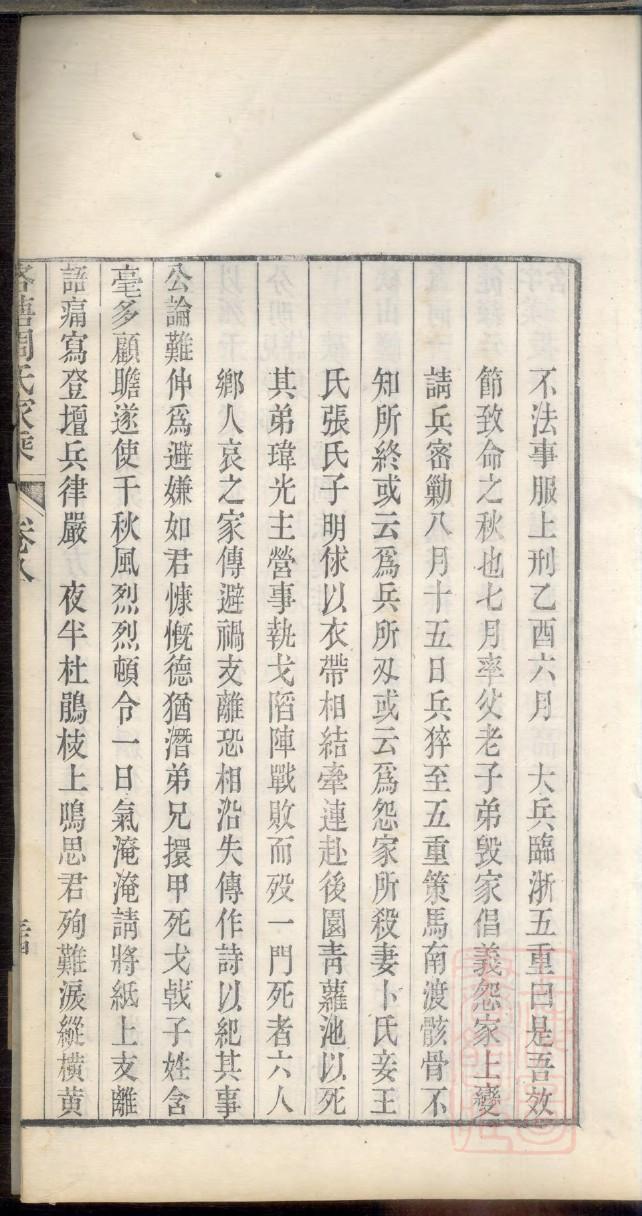 不法事服上刑乙酉六月　大兵臨浙五重曰是吾效
節致命之秋也七月率父老子弟毀家倡義怨家上變
請兵密勦八月十五日兵猝至五重策馬南渡骸骨不
知所終或云爲兵所刄或云爲怨家所殺妻卜氏妾王
氏張氏子明俅以衣帶相結牽連赴後園靑蘿池以死
其弟瑋光主營事執戈陷陣戰敗而歿一門死者六人
鄉人哀之家傳避禍支離恐相沿失傳作詩以紀其事
公論難伸爲避嫌如君慷慨德猶潛弟兄擐甲死戈戟子姓含
毫多顧瞻遂使千秋風烈烈頓令一日氣淹淹請將紙上支離
語痛寫登壇兵律嚴　夜半杜鵑枝上鳴思君殉難淚縱橫黄
周氏家乘　卷八